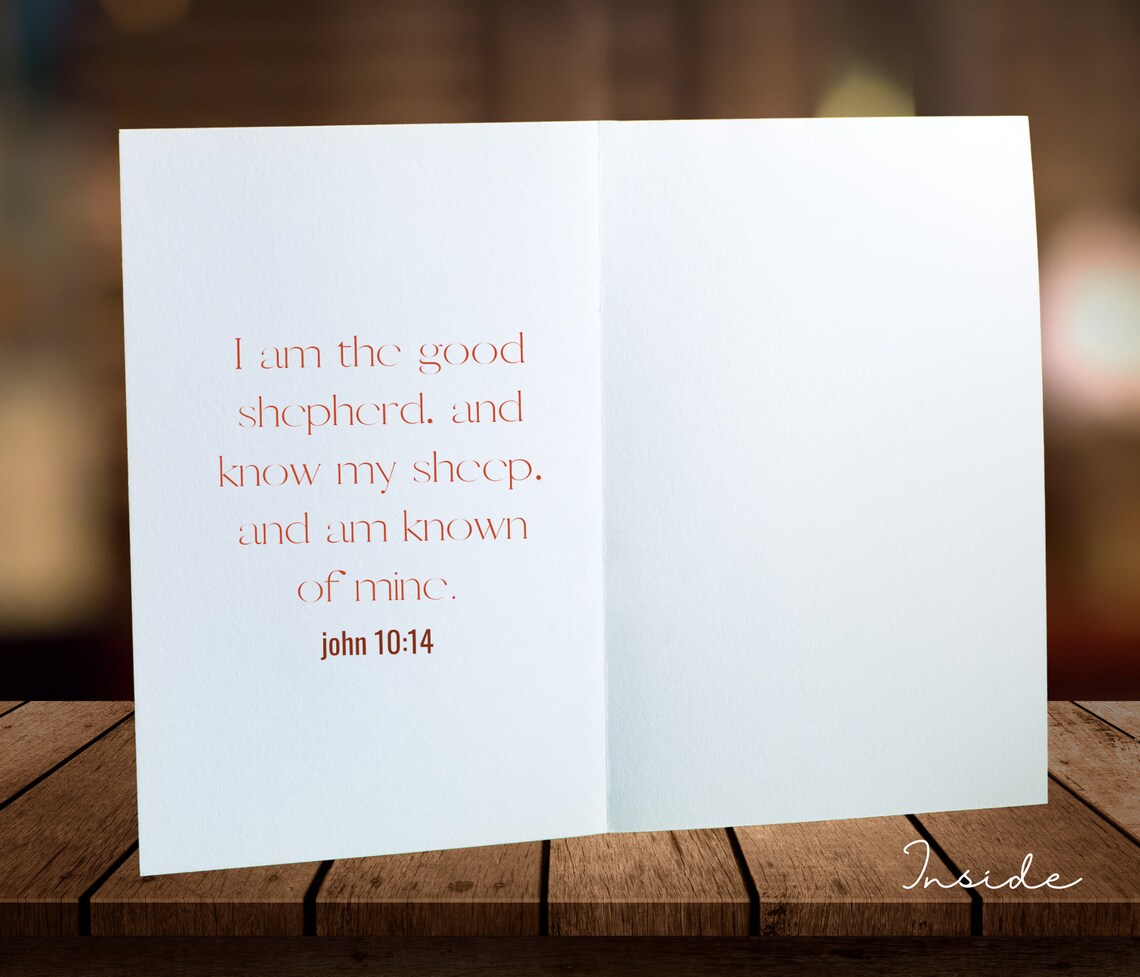 I am the good
shepherd. and
know my sheep.
and am known
of mine.
john 10:14
Inside